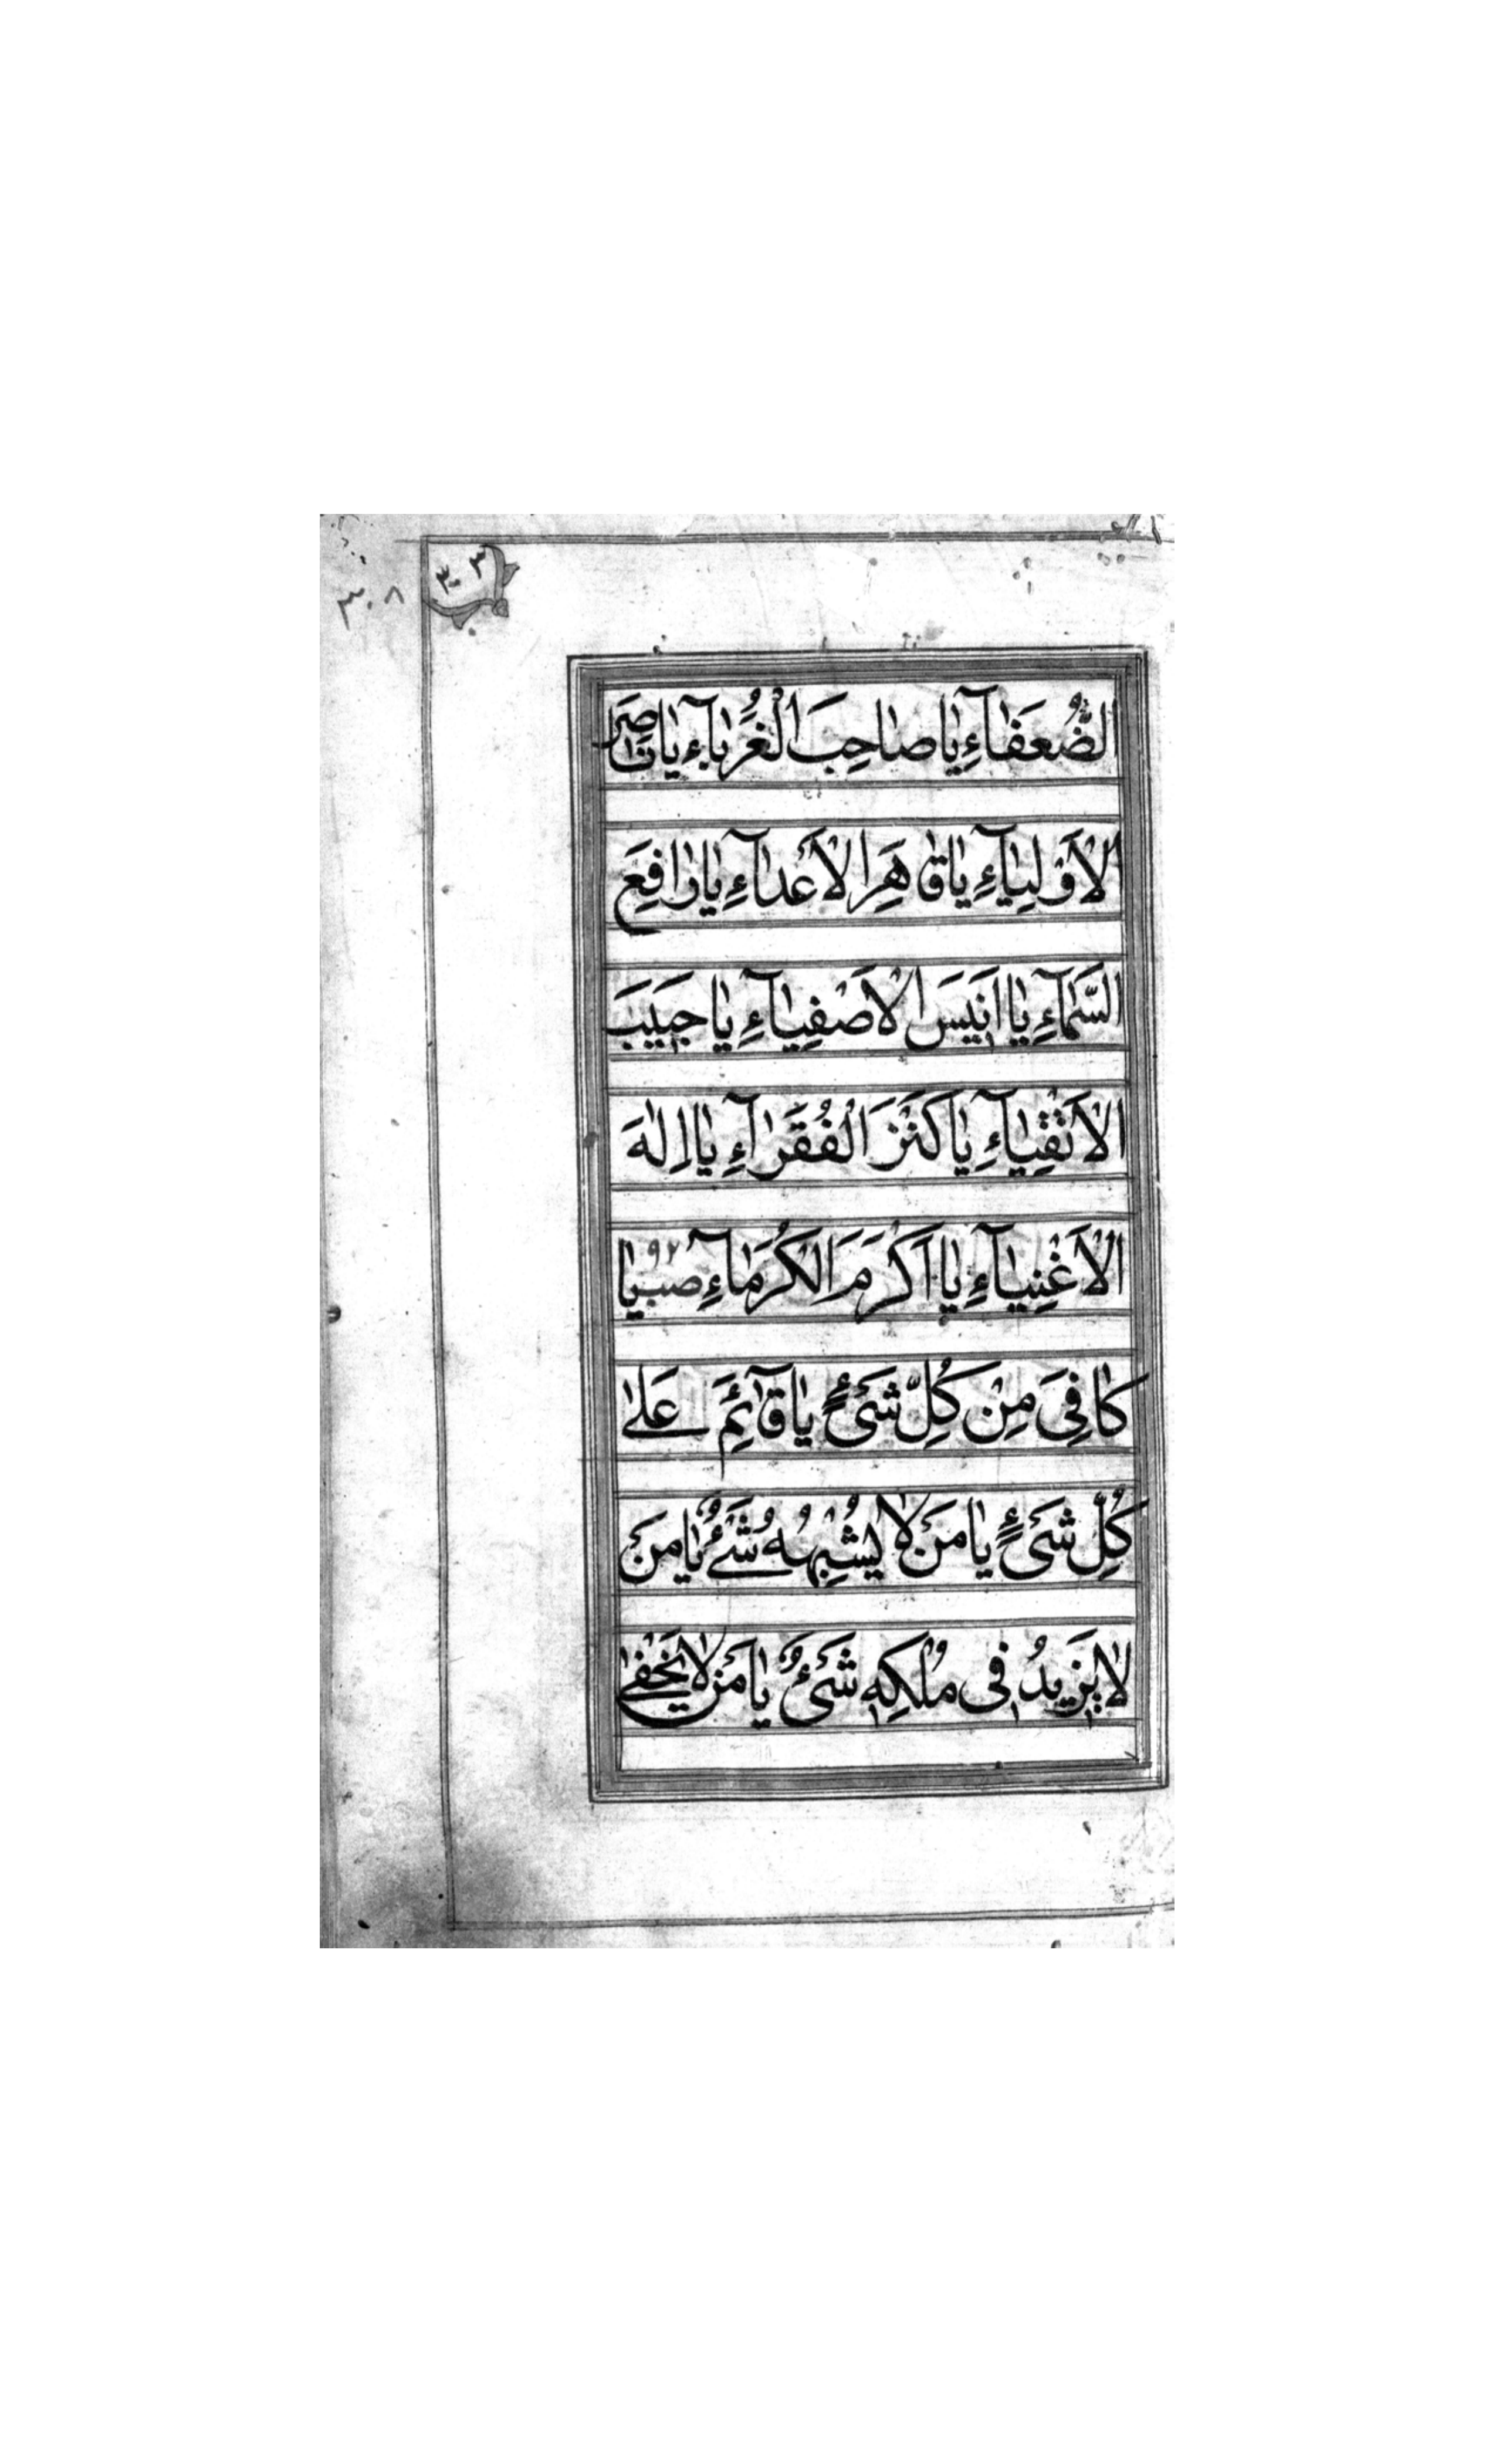 ٣٠٣
٣٠٨
الضُّعَفٰآءِ یٰا صٰاحِبَ الْغُرَبٰآءِ یٰا نٰاصِرَ
الْاَوْلِیٰآءِ یٰا قٰاهِرَ الْاَعْدٰآءِ یٰا رٰافِعَ
السَّمٰآءِ یٰا اَنِیسَ الْاَصْفِیٰآءِ یٰا حَبِیبَ
الْاَتْقِیٰآءِ یٰا کَنْزَ الْفُقَرٰآءِ یٰا اِلٰهَ
الْاَغْنِیٰآءِ یٰا اَکْرَمَ الْکُرَمٰآءِ صب ٩٢ یٰا
کٰافِیَ مِنْ کُلِّ شَیْءٍ یٰا قٰآئِمَ عَلیٰ
کُلِّ شَیْءٍ یٰا مَنْ لٰا یُشْبِهُهُ شَیْءٌ یٰا مَنْ
لٰا یَزِیدُ فِی مُلْکِهِ شَیْءٌ یٰا مَنْ لٰا یَخْفیٰ